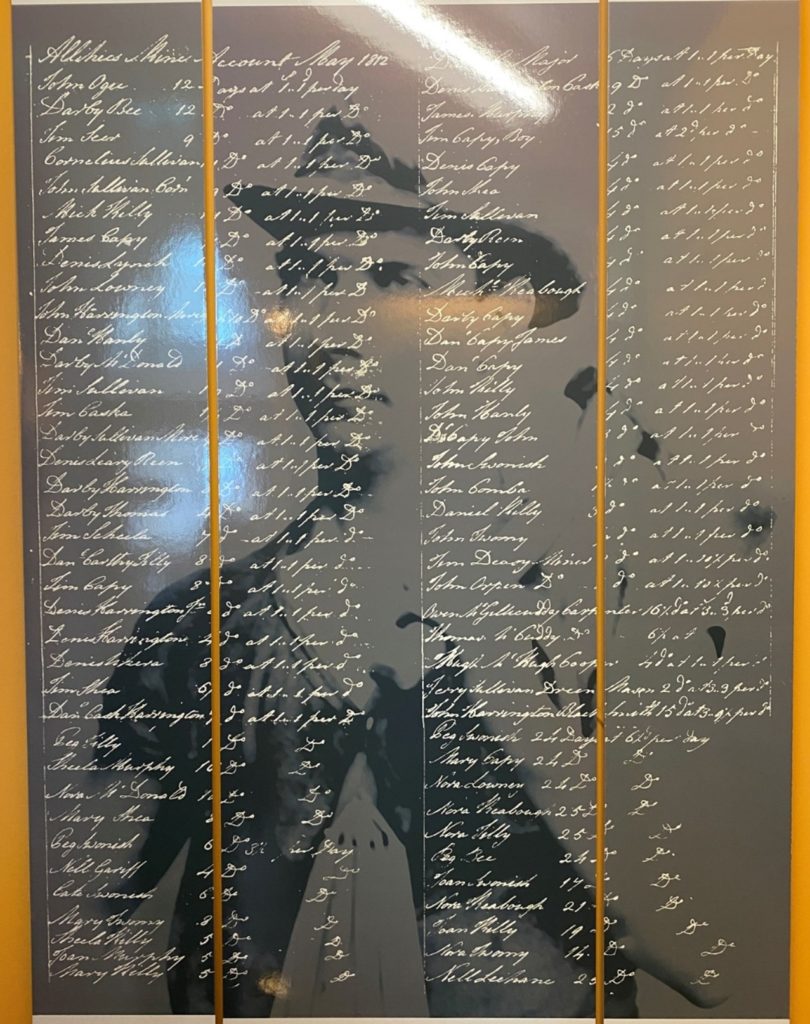 Allihies Mine Account May 1812
John Ogee 12 Days at 1..1 per day
Darby Bee 12 Do at 1..1 per Do
Tim Seer 9 Do at 1..1 per Do
Cornelius Sullivan Do at 1..1 per Do
John Sullivan Do at 1..1 per Do
Mick Kelly Do at 1..1 per Do
James Capy Do at 1..1 per Do
Denis Lynch Do at 1..1 per Do
John Lowney Do at 1..1 per D
John Harrington Do at 1..1 per Do
Dan Hanly Do at 1..1 per Do
Darby McDonald Do at 1..1 per Do
Tim Sullivan Do at 1..1 per Do
Tim Caska Do at 1..1 per Do
Darby Sullivan Do at 1..1 per Do
Denis Leary at 1..1 per Do
Darby Harrington Do at 1..1 per Do
Darby Thomas Do at 1..1 per Do
Tim Scheela 7 Do at 1..1 per do
Dan Carthy 8 do at 1..1 per do
Tim Capy 8 do at 1..1 per do
Denis Harrington do at 1..1 per do
Denis Harrington 4 do at 1..1 per do
Denis 8 do at 1..1 per do
Tim Shea 5 do at 1..1 per do
Dan Cash Harrington do at 1..1 per D
Peg Kelly 1 Do Do
Sheela Murphy 10 Do Do
Nora McDonald Do Do
Mary Shea 8 Do Do
Peg Swonish 6 Do per Day
Nell Gariff 4 Do Do
Cate Swonish 6 Do Do
Mary Twomy 8 Do Do
Sheela Kelly 5 Do D
Joan Murphy 5 Do Do
Mary Kelly 5 Do Do
Major 5 Days at 1..1 per Day
Denis 9 Do at 1..1 per Do
James Murphy 2 do at 1..1 per do
Tim Capy, Boy 15 do at 2d per do
Denis Capy 4 do at 1..1 per do
John Shea 4 do at 1..1 per do
Tim Sullivan 4 do at 1..1 per do
Darby 4 do at 1..1 per do
John Capy 4 do at 1..1 per do
Heabough 4 do at 1..1 per do
Darby Capy 4 do at 1..1 per do
Dan Capy James 4 do at 1..1 per do
Dan Capy 4 do at 1..1 per do
John Kelly do at 1..1 per do
John Hanly 4 do at 1..1 per do
Capy John do at 1..1 per
John Swonish do at 1..1 per do
John Combo do at 1..1 per do
Daniel Kelly do at 1..1 per do
John Twomy at 1..1 per do
Tim Deasy Miner do at per do
John Orpen Do do at per do
Owen Carpenter 16½ d at 3..3 per do
Thomas Do 6½ at
Hugh McHugh Cooper 4 do at 1..1 per
Jerry Sullivan Dreen Mason 2 d at 3..3 per do
John Harrington Black Smith 15 d at per do
Peg Swonish 24 Days at 6½ per day
Mary Capy 24 D Do
Nora Lowney 24 Do Do
Nora Heabough 25 Do Do
Nora Kelly 25 Do
Peg Bee 24 Do
Joan Swonish 17 Do
Nora Heabough 21 Do
Joan Kelly 19 Do
Nora Twomy 14 Do
Nell Leehane 25 Do Do